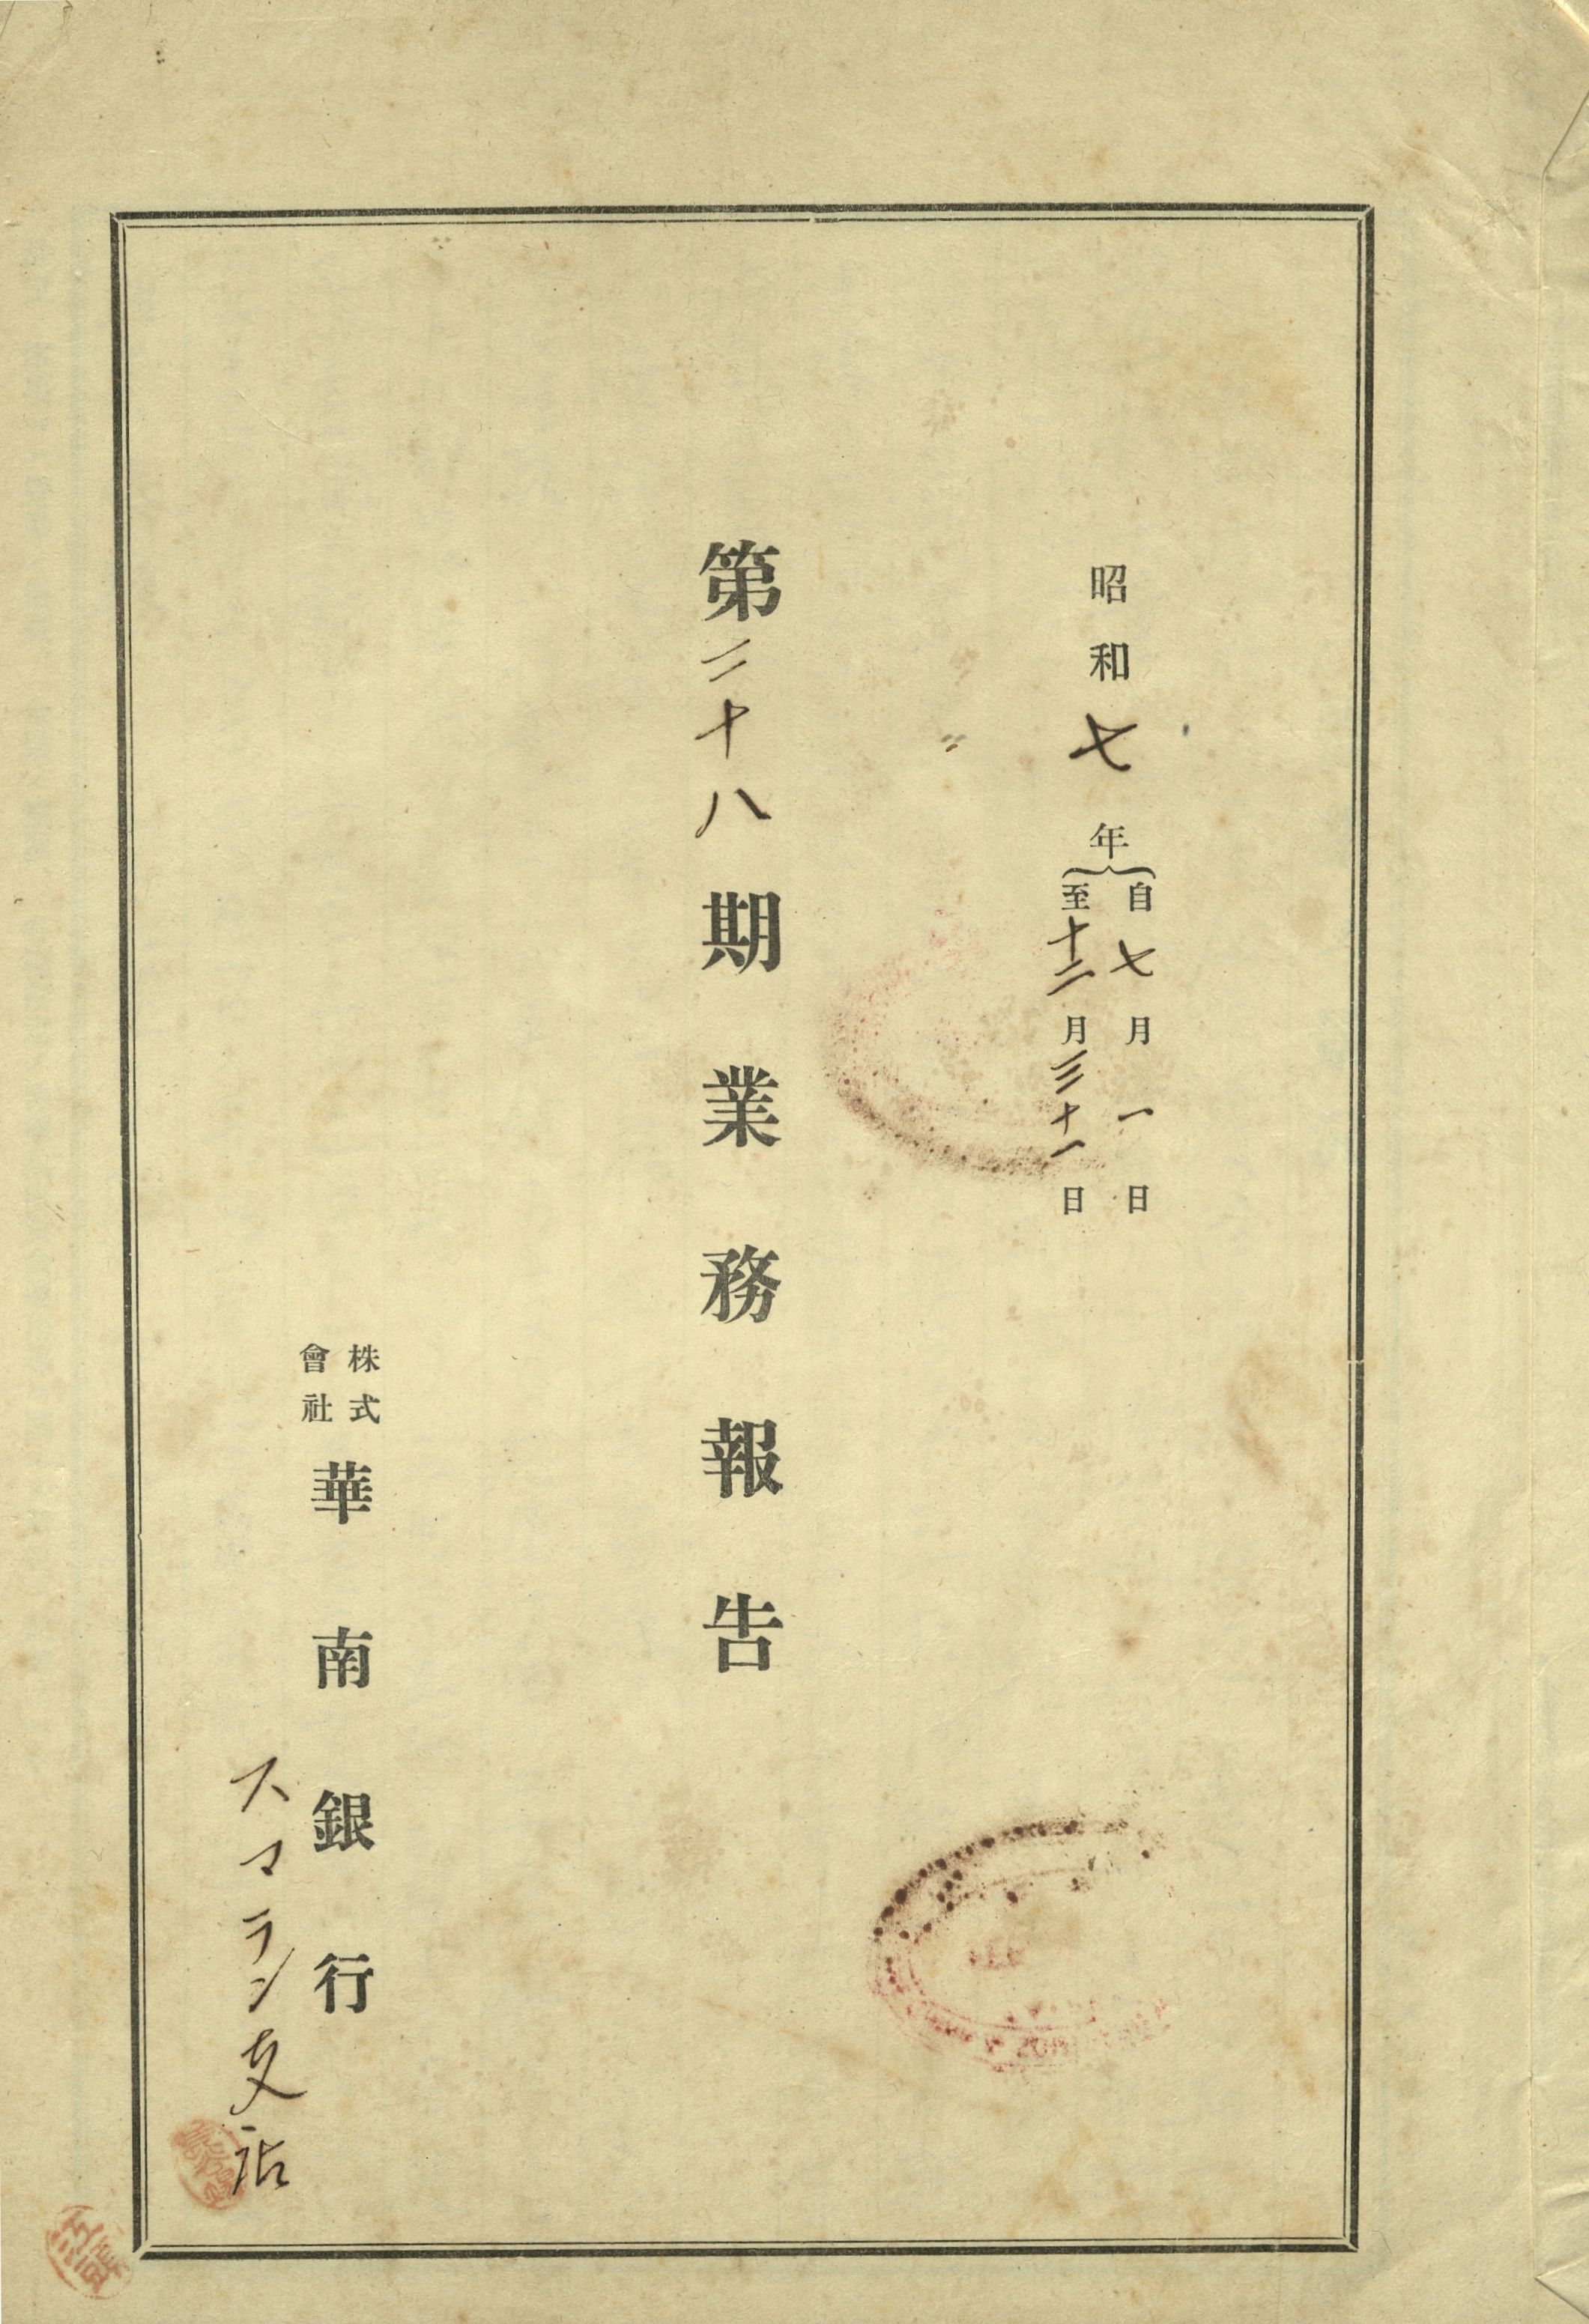 昭和七年
自七月一日
至十二月三十一日
第二十八期業務報告
株式
會社
華南銀行
スマラン支店